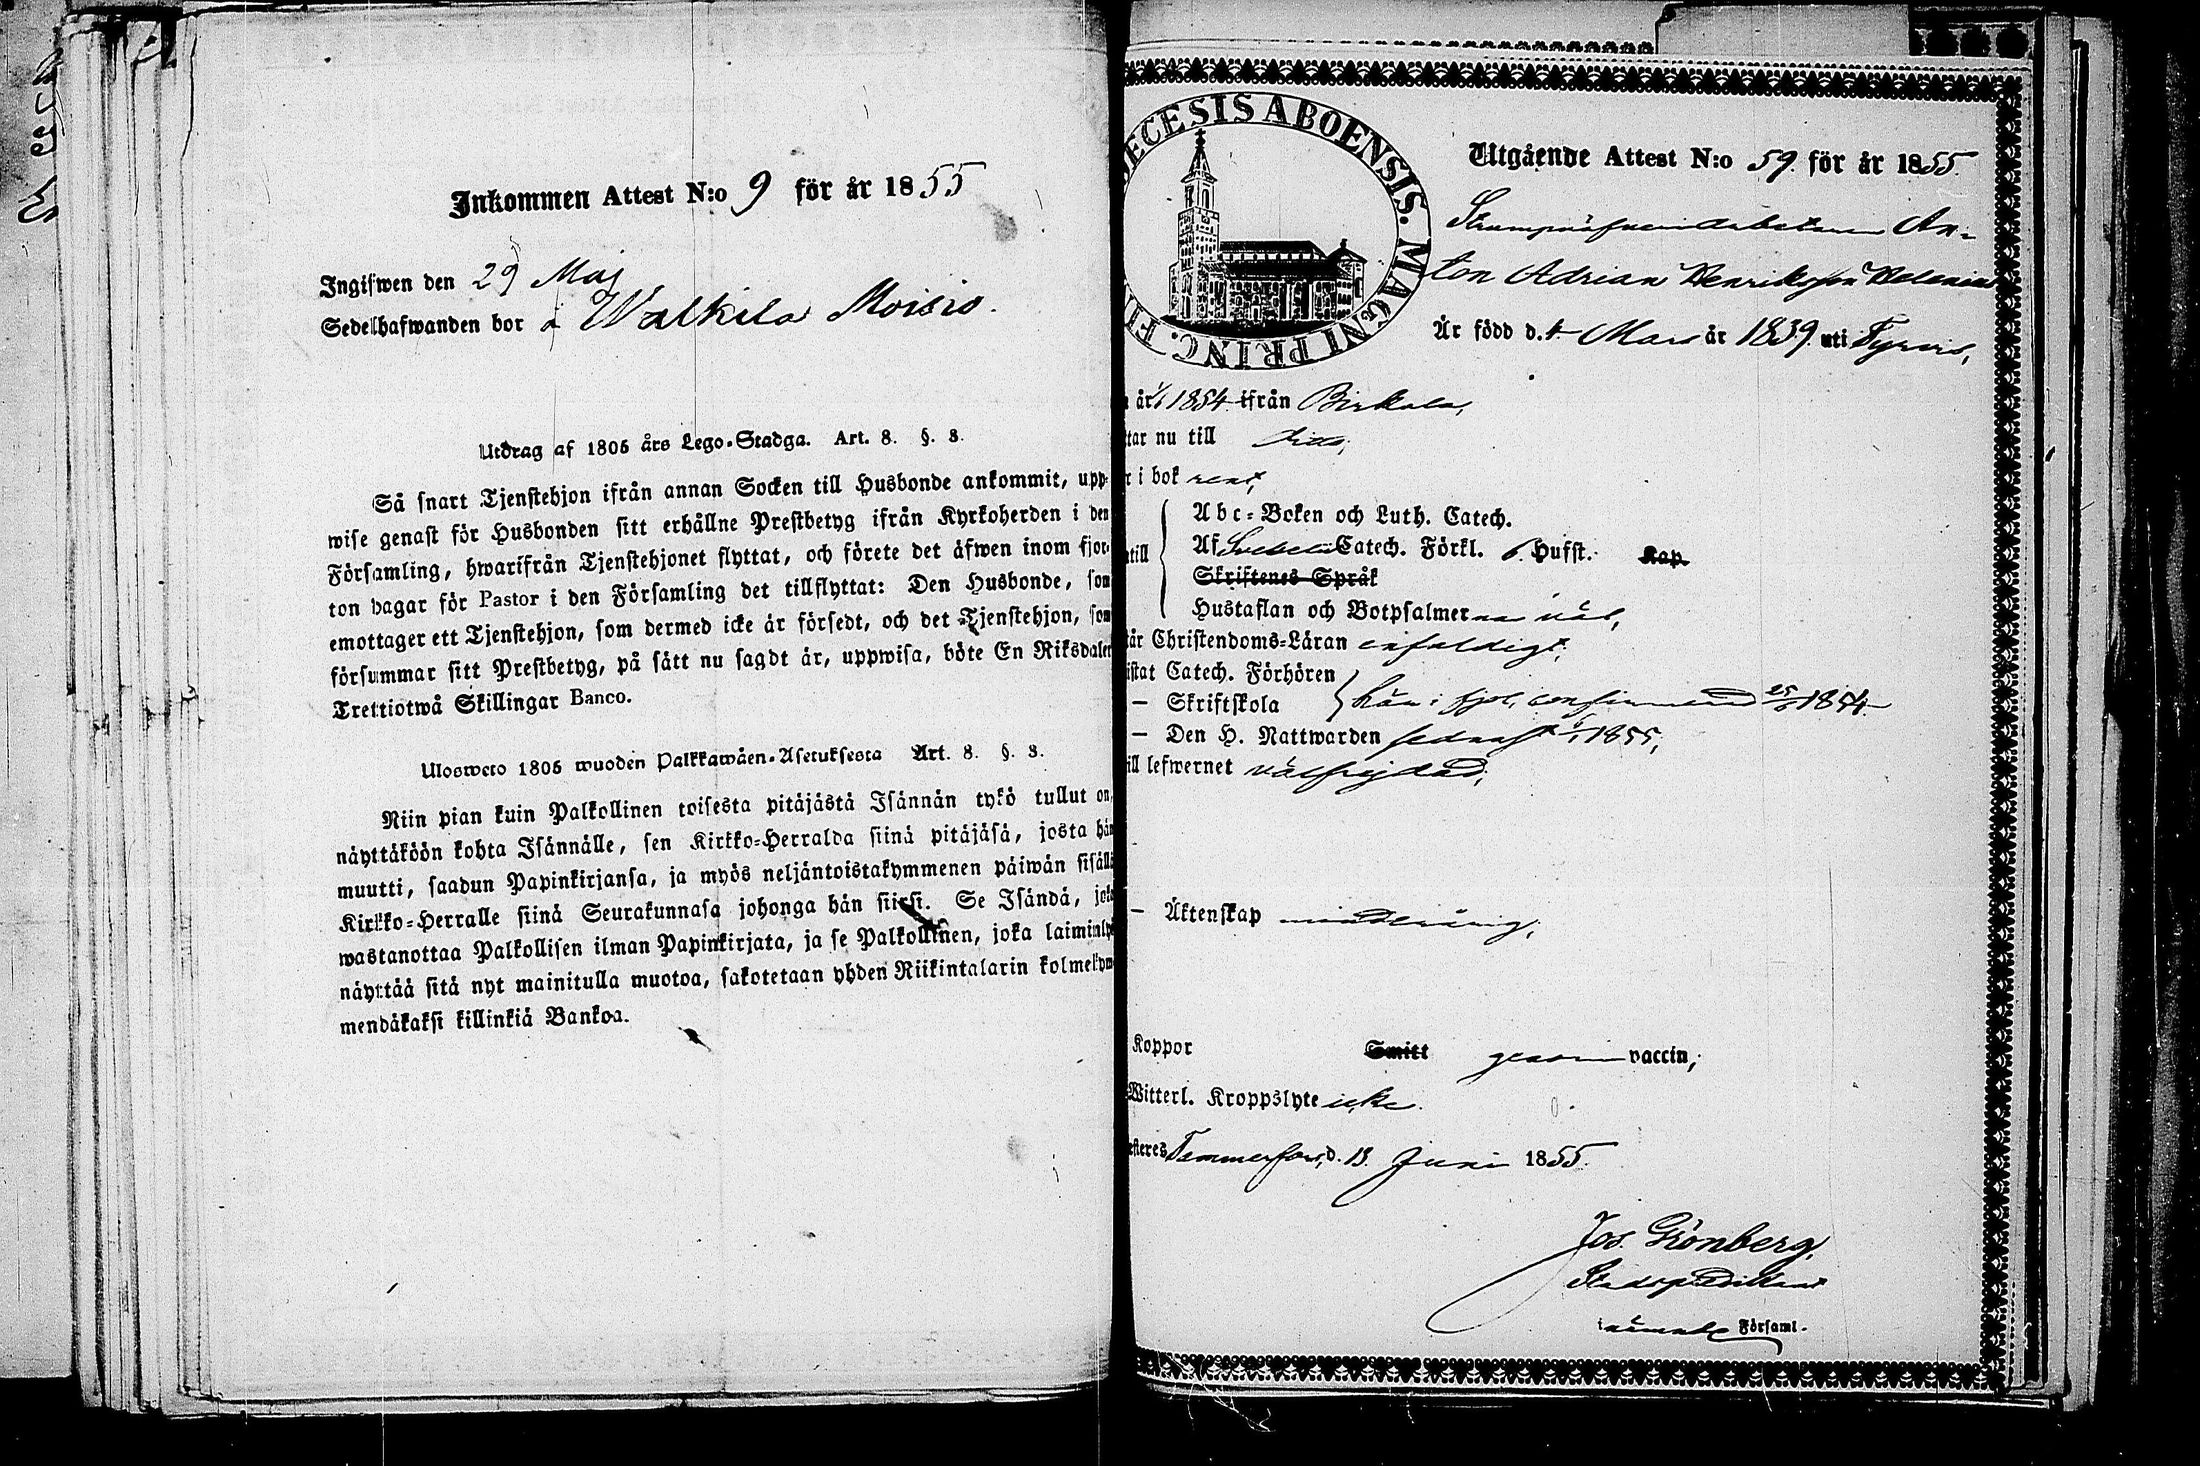 Inkommen Attest N:o 9 för år 1855
Ingifwen den 29 Maj
Sedelhafwanden bor å Walkila Moisio.
Utdrag af 1805 års Lego-Stadga. Art. 8. §. 8.
Så snart Tjenstehjon ifrån annan Socken till Husbonde ankommit, upp-
wise genast för Husbonden sitt erhållne Prestbetyg ifrån Kyrkoherden i den
Församling, hwarifrån Tjenstehjonet flyttat, och förete det äfwen inom fjor-
ton dagar för Pastor i den Församling det tillflyttat: Den Husbonde, som
emottager ett Tjenstehjon, som dermed icke är försedt, och det Tjenstehjon, som
försummar sitt Prestbetyg, på sätt nu sagdt är, uppwisa, böte En Riksdaler
Trettiotwå Skillingar Banco.
Ulosweto 1805 wuoden Palkkawäen-Asetuksesta Art. 8. §. 8.
Niin pian kuin Palkollinen toisesta pitäjästä Isännän tykö tullut on,
näyttäköön kohta Isännälle, sen Kirkko-Herralda siinä pitäjäsä, josta hän
muutti, saadun Papinkirjansa, ja myös neljäntoistakymmenen päiwän sisällä
Kirkko-Herralle siinä Seurakunnasa johonga hän siirsi. Se Isändä, joka
wastanottaa Palkollisen ilman Papinkirjata, ja se Palkollinen, joka laiminlyö
näyttää sitä nyt mainitulla muotoa, sakotetaan yhden Riikintalarin kolmekym-
mendäkaksi killinkiä Bankoa.
DIECESIS ABOENSIS. MAGNI PRINC. FI
Utgående Attest N:o 59. för år 1855.
An-
ton Adrian Henriksson Helenius
Är född d. 4 Mars år 1839. uti Tyrvis,
år 1/1 1854 ifrån Birkala,
tar nu till ditto,
r i bok rent,
till
Abc-Boken och Luth. Catech.
Af Svebelii Catech. Förkl. 6. Hufst. Kap.
Skriftenes Språk
Hustaflan och Botpsalmerna väl,
år Christendoms-Läran enfaldigt,
istat Catech. Förhören
– Skriftskola här i fjol, confirmerad 25/6 1854
– Den H. Nattwarden sednast 1855,
ill lefwernet välfrejdad,
– Äktenskap minderårig,
Koppor Smitt genom vaccin,
Witterl. Kroppslyte icke.
esteres Tammerfors, d. 13. Juni 1855.
Jos. Grönberg,
Stadspredikant
i nämnde Församl.